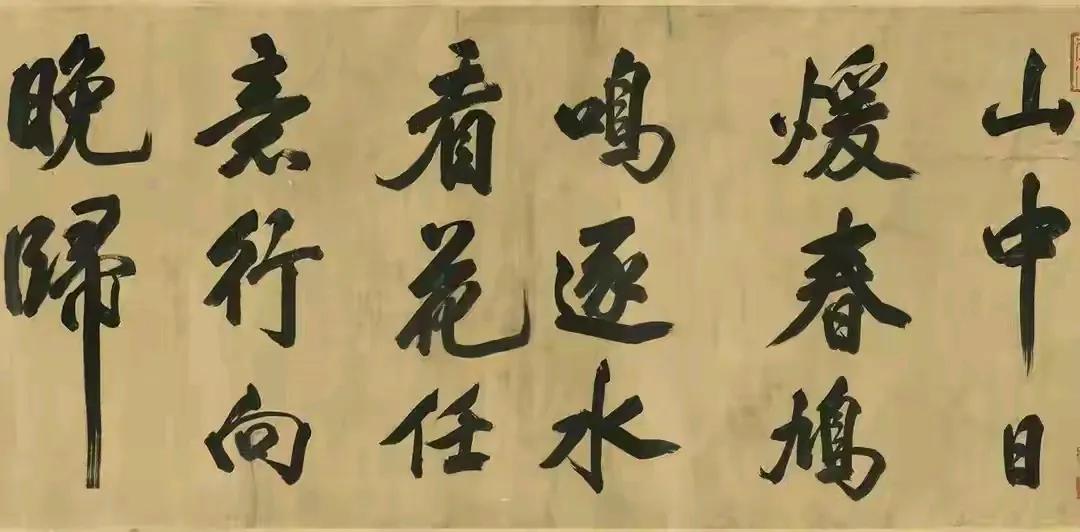 山中日
煖春鳩
鳴逐水
看花任
意行向
晚歸